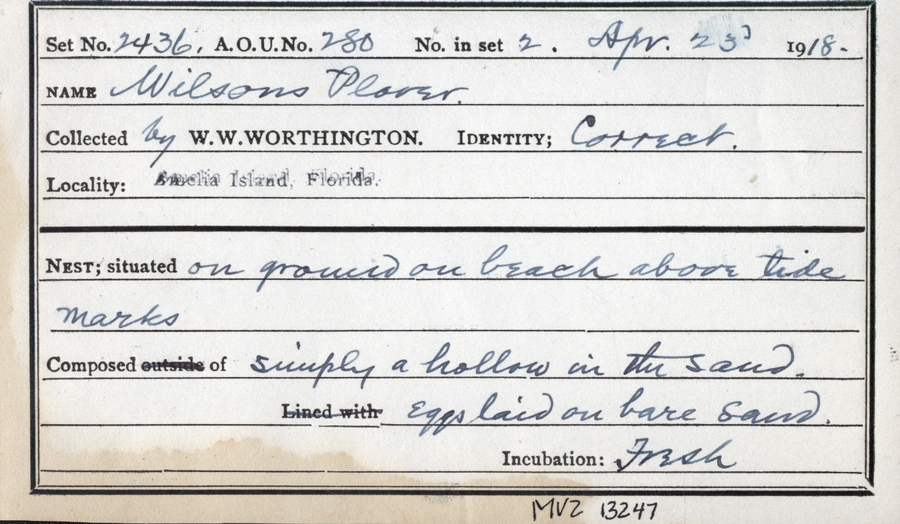 Set No. 2436. A.O.U. No. 280 No. in set 2. Apr. 23 1918.
NAME Wilsons Plover.
Collected by W.W.WORTHINGTON. IDENTITY; Correct.
Locality: Amelia Island, Florida.
NEST; situated on ground on beach above tide
marks
Composed outside of simply a hollow in the sand.
Lined with Eggs laid on bare sand.
Incubation: Fresh
MVZ 13247